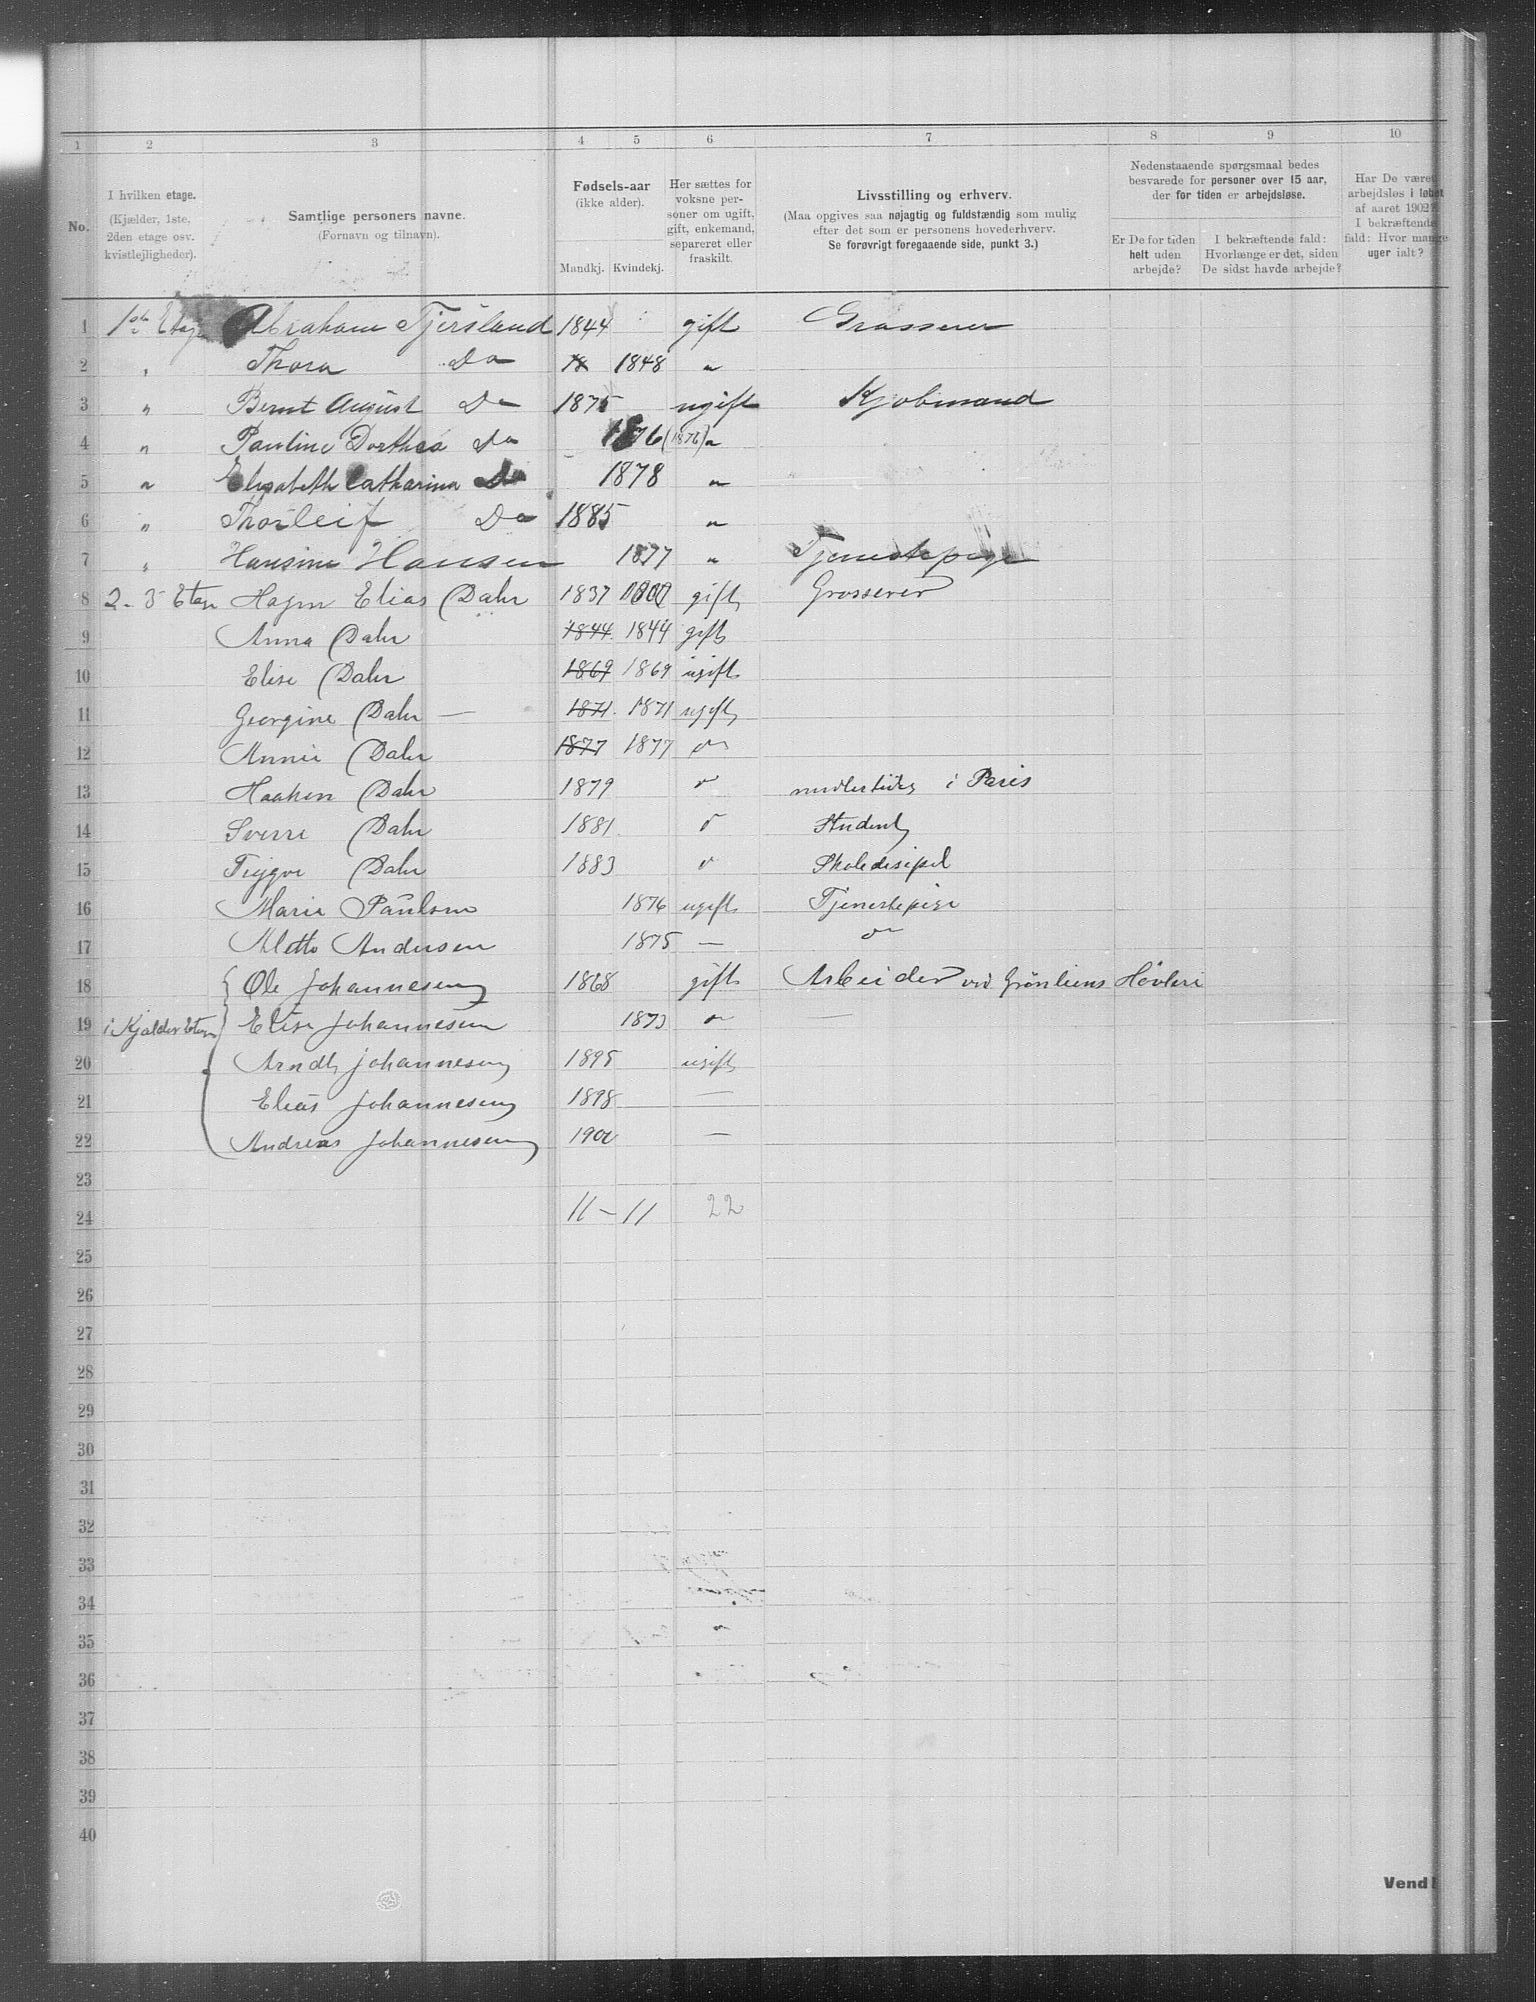 1 2 3 4 5 6 7 8 9 10
No.
I hvilken etage.
(Kjælder, 1ste,
2den etage osv.
kvistlejligheder).
Samtlige personers navne.
(Fornavn og tilnavn).
Fødsels-aar
(ikke alder).
Mandkj. Kvindekj.
Her sættes for
voksne per-
soner om ugift,
gift, enkemand,
separeret eller
fraskilt.
Livsstilling og erhverv.
(Maa opgives saa nøjagtig og fuldstændig som mulig
efter det som er personens hovederhverv.
Se forøvrigt foregaaende side, punkt 3.)
Nedenstaaende spørgsmaal bedes
besvarede for personer over 15 aar,
der for tiden er arbejdsløse.
Er De for tiden
helt uden
arbejde?
I bekræftende fald:
Hvorlænge er det, siden
De sidst havde arbejde?
Har De været
arbejdsløs i løbet
af aaret 1902?
I bekræftende
fald: Hvor mange
uger ialt?
1 1ste Etage Abraham Tjersland 1844 gift Grosserer
2 " Thora Do 18 1848 "
3 " Bernt August Do 1875 ugift Kjøbmand
4 " Pauline Dorthea Do 1876 (1876) "
5 " Elisabeth Catharina Do 1878 "
6 " Thorleif Do 1885 "
7 " Hansine Hansen 1877 " Tjenestepige
8 2. 3 Etage Hagen Elias Dahr 1837 gift Grosserer
9 Anna Dahr 1844 1844 gift
10 Elise Dahr 1869 1869 ugift
11 Georgine Dahr — 1871 1871 ugift
12 Annie Dahr 1877 1877 "
13 Haakon Dahr 1879 " midlertidig i Paris
14 Sverre Dahr 1881 " Student
15 Trygve Dahr 1883 " Skoledisipel
16 Marie Paulsen 1876 ugift Tjenestepige
17 Aletta Andersen 1875 — "
18 Ole Johannesen 1868 gift Arbeider ved Grønliens Høvleri
19 i Kjælder Etagen Elise Johannesen 1873 " —
20 Arndt Johannesen 1895 ugift
21 Elias Johannesen 1898 —
22 Andreas Johannesen 1900 —
23
24 11 – 11 22
25
26
27
28
29
30
31
32
33
34
35
36
37
38
39
40
Vend!